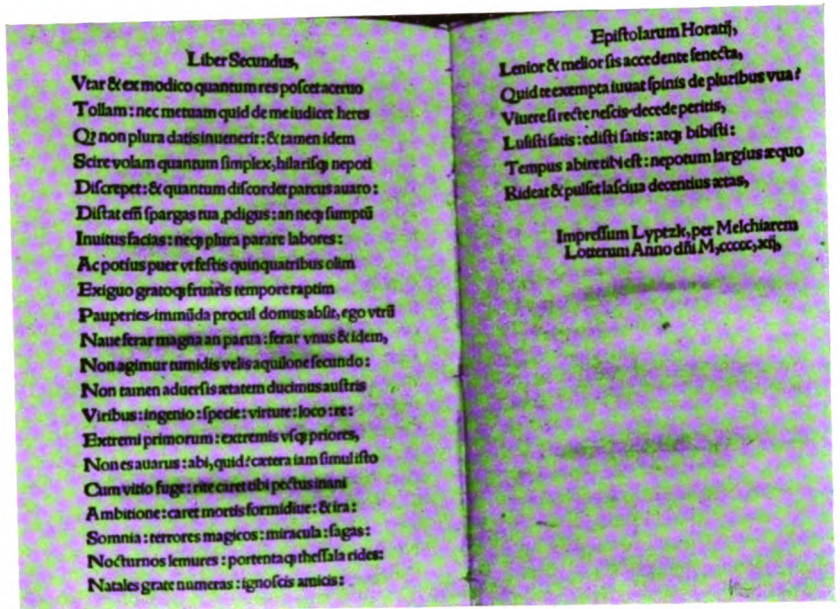 Liber Secundus,
Vtar & ex modico quantum res poscet aceruo
Tollam : nec metuam quid de me iudicet heres
Qꝫ non plura datis inuenerit : & tamen idem
Scire volam quantum simplex, hilarisqꝫ nepoti
Discrepet : & quantum discordet parcus auaro :
Distat em̄ spargas tua ꝓdigus : an neqꝫ sumptū
Inuitus facias : neqꝫ plura parare labores :
Ac potius puer vt festis quinquatribus olim
Exiguo gratoqꝫ fruaris tempore raptim
Pauperies immūda procul domus absit, ego vtrū
Naue ferar magna an parua : ferar vnus & idem,
Non agimur tumidis velis aquilone secundo :
Non tamen aduersis ætatem ducimus austris
Viribus : ingenio : specie : virtute : loco : re :
Extremi primorum : extremis vsqꝫ priores,
Non es auarus : abi, quid ? cætera iam simul isto
Cum vitio fuge : rite caret tibi pectus inani
Ambitione : caret mortis formidine : & ira :
Somnia : terrores magicos : miracula : sagas :
Nocturnos lemures : portentaqꝫ thessala rides :
Natales grate numeras : ignoscis amicis :
Epistolarum Horatij,
Lenior & melior sis accedente senecta,
Quid te exempta iuuat spinis de pluribus vua ?
Viuere si recte nescis decede peritis,
Lusisti satis : edisti satis : atqꝫ bibisti :
Tempus abire tibi est : nepotum largius æquo
Rideat & pulset lasciua decentius ætas,
Impressum Lyptzk, per Melchiarem
Lotterum Anno dñi M, ccccc, xij,